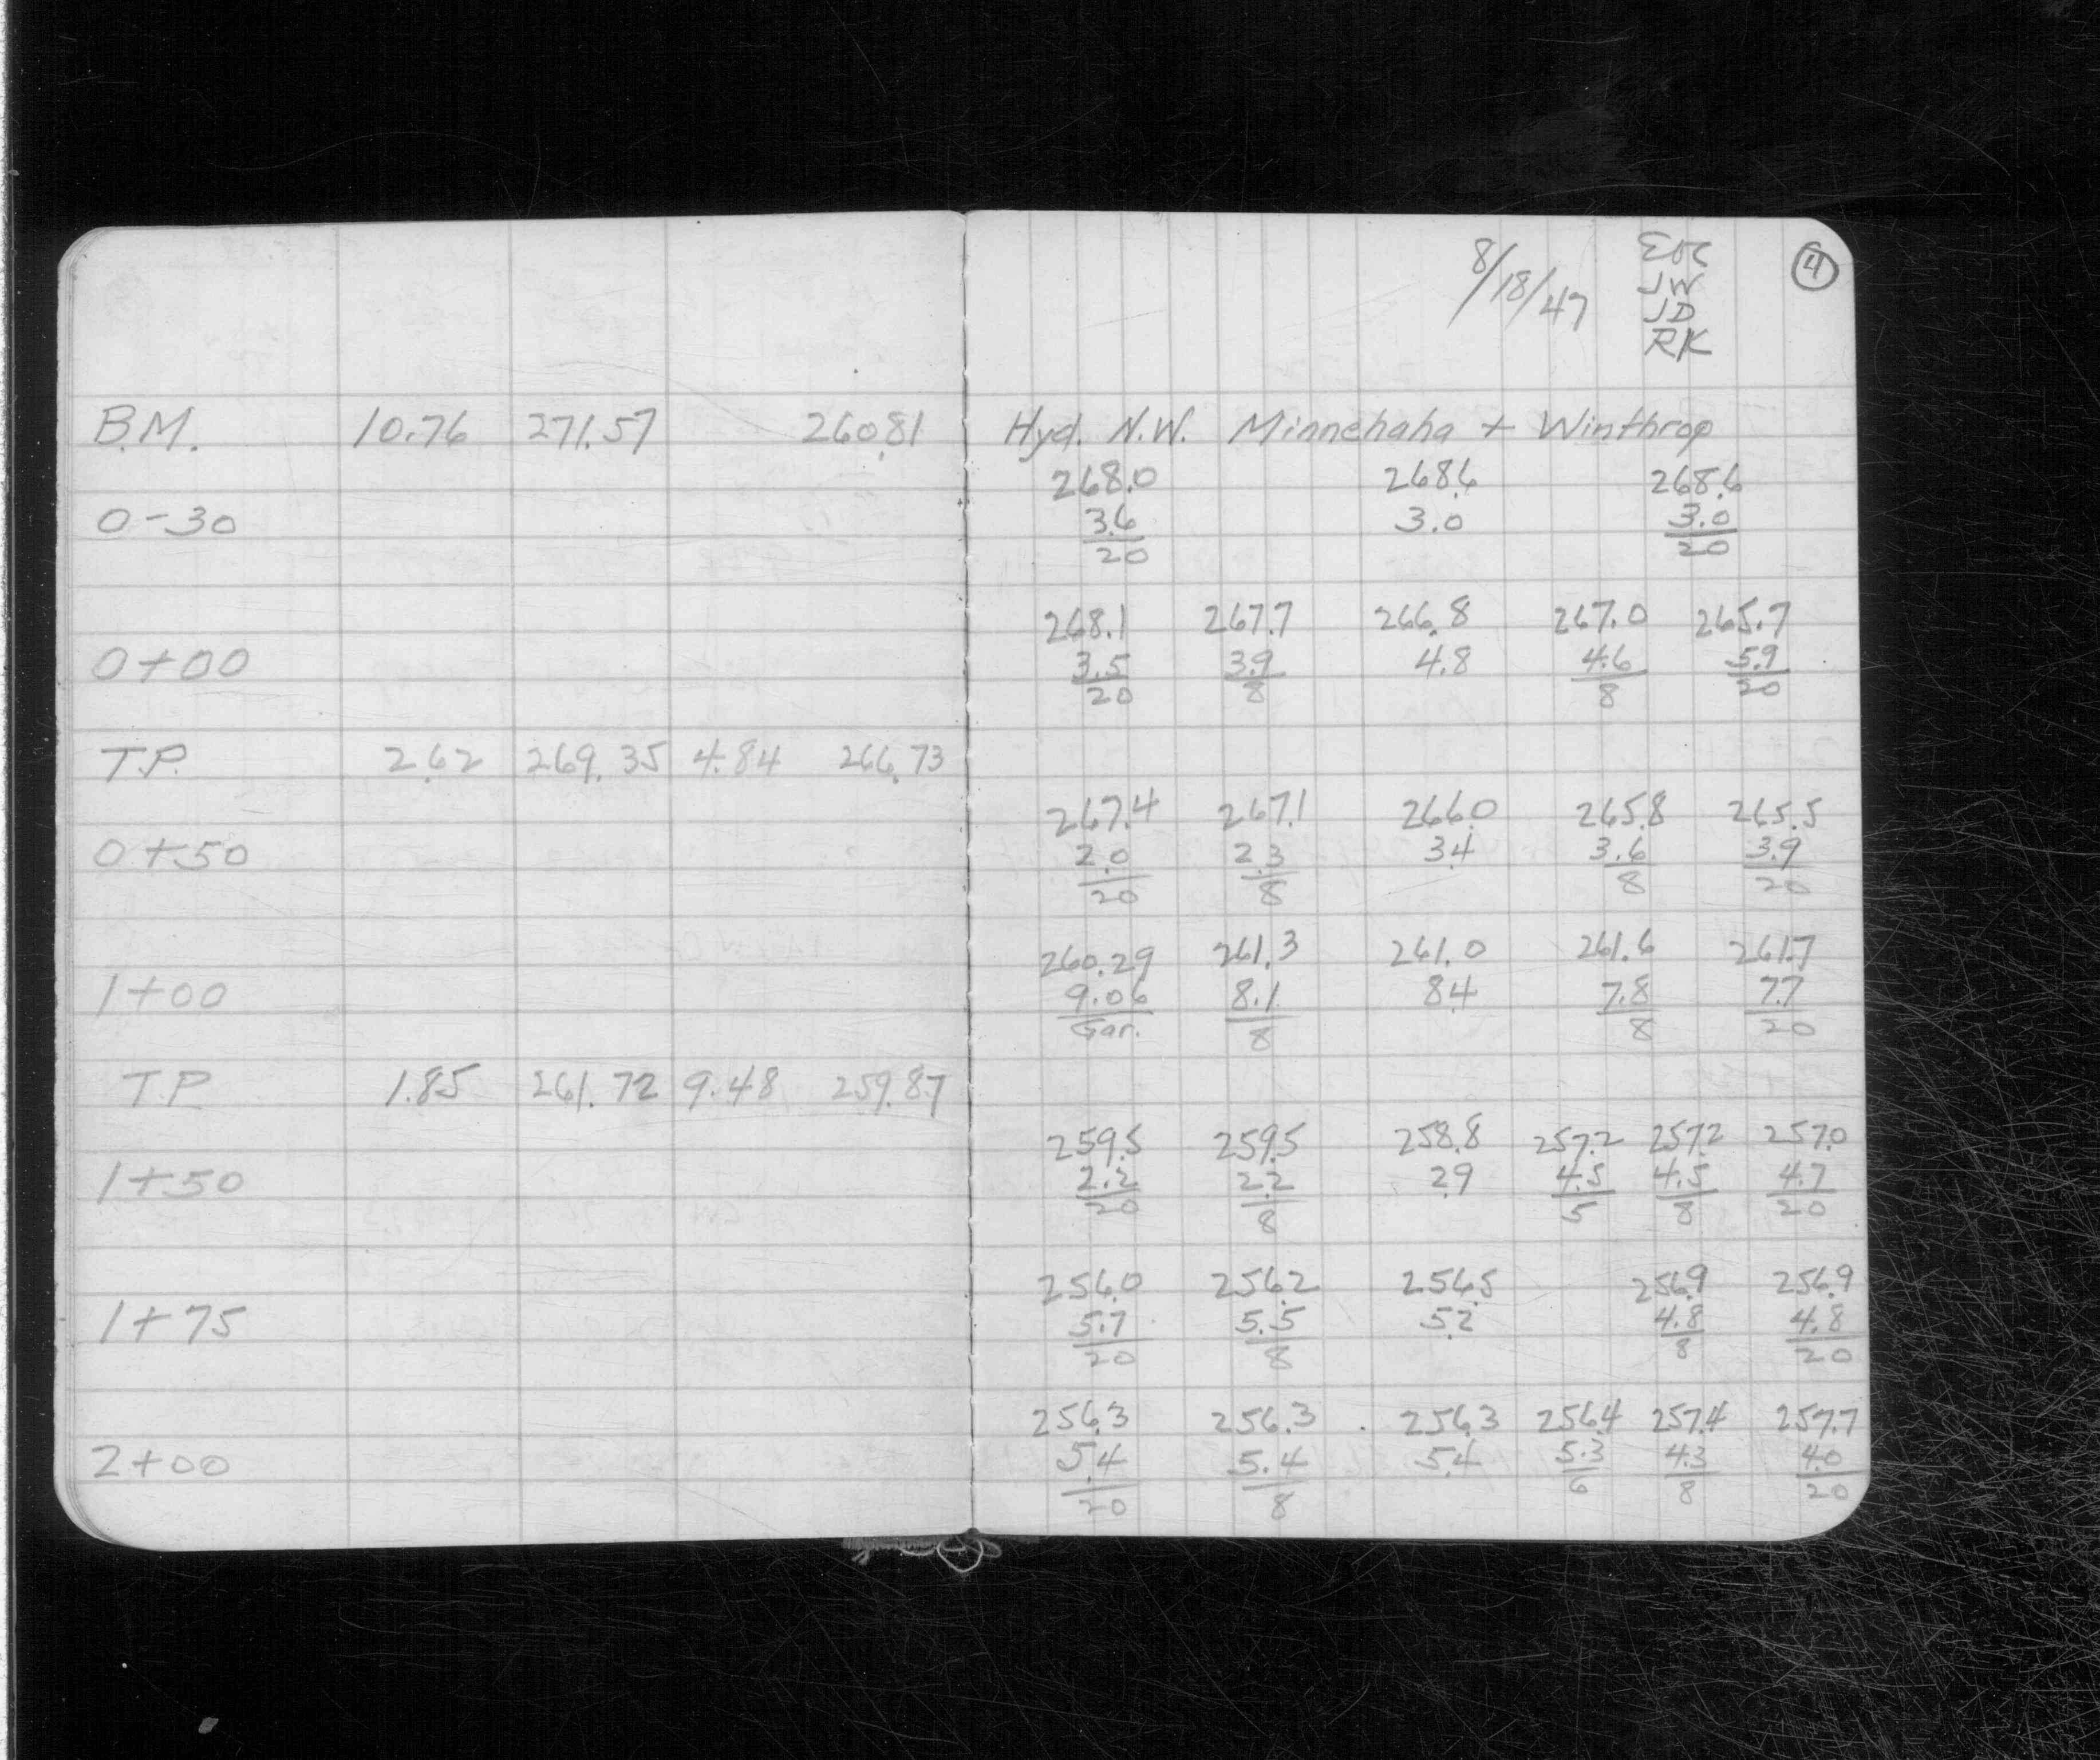 8/18/47
EOC
JW
JD
RK
4
B.M. 10.76 271.57 260.81 Hyd. N.W. Minnehaha + Winthrop
268.0 268.6 268.6
0-30 3.6 3.0 3.0
20 20
268.1 267.7 266.8 267.0 265.7
0+00 3.5 3.9 4.8 4.6 5.9
20 8 8 20
T.P. 2.62 269.35 4.84 266.73
267.4 267.1 266.0 265.8 265.5
0+50 2.0 2.3 3.4 3.6 3.9
20 8 8 20
260.29 261.3 261.0 261.6 261.7
1+00 9.06 8.1 8.4 7.8 7.7
Gar. 8 8 20
T.P. 1.85 261.72 9.48 259.87
259.5 259.5 258.8 257.2 257.2 257.0
1+50 2.2 2.2 2.9 4.5 4.5 4.7
20 8 5 8 20
256.0 256.2 256.5 256.9 256.9
1+75 5.7 5.5 5.2 4.8 4.8
20 8 8 20
256.3 256.3 256.3 256.4 257.4 257.7
2+00 5.4 5.4 5.4 5.3 4.3 4.0
20 8 6 8 20